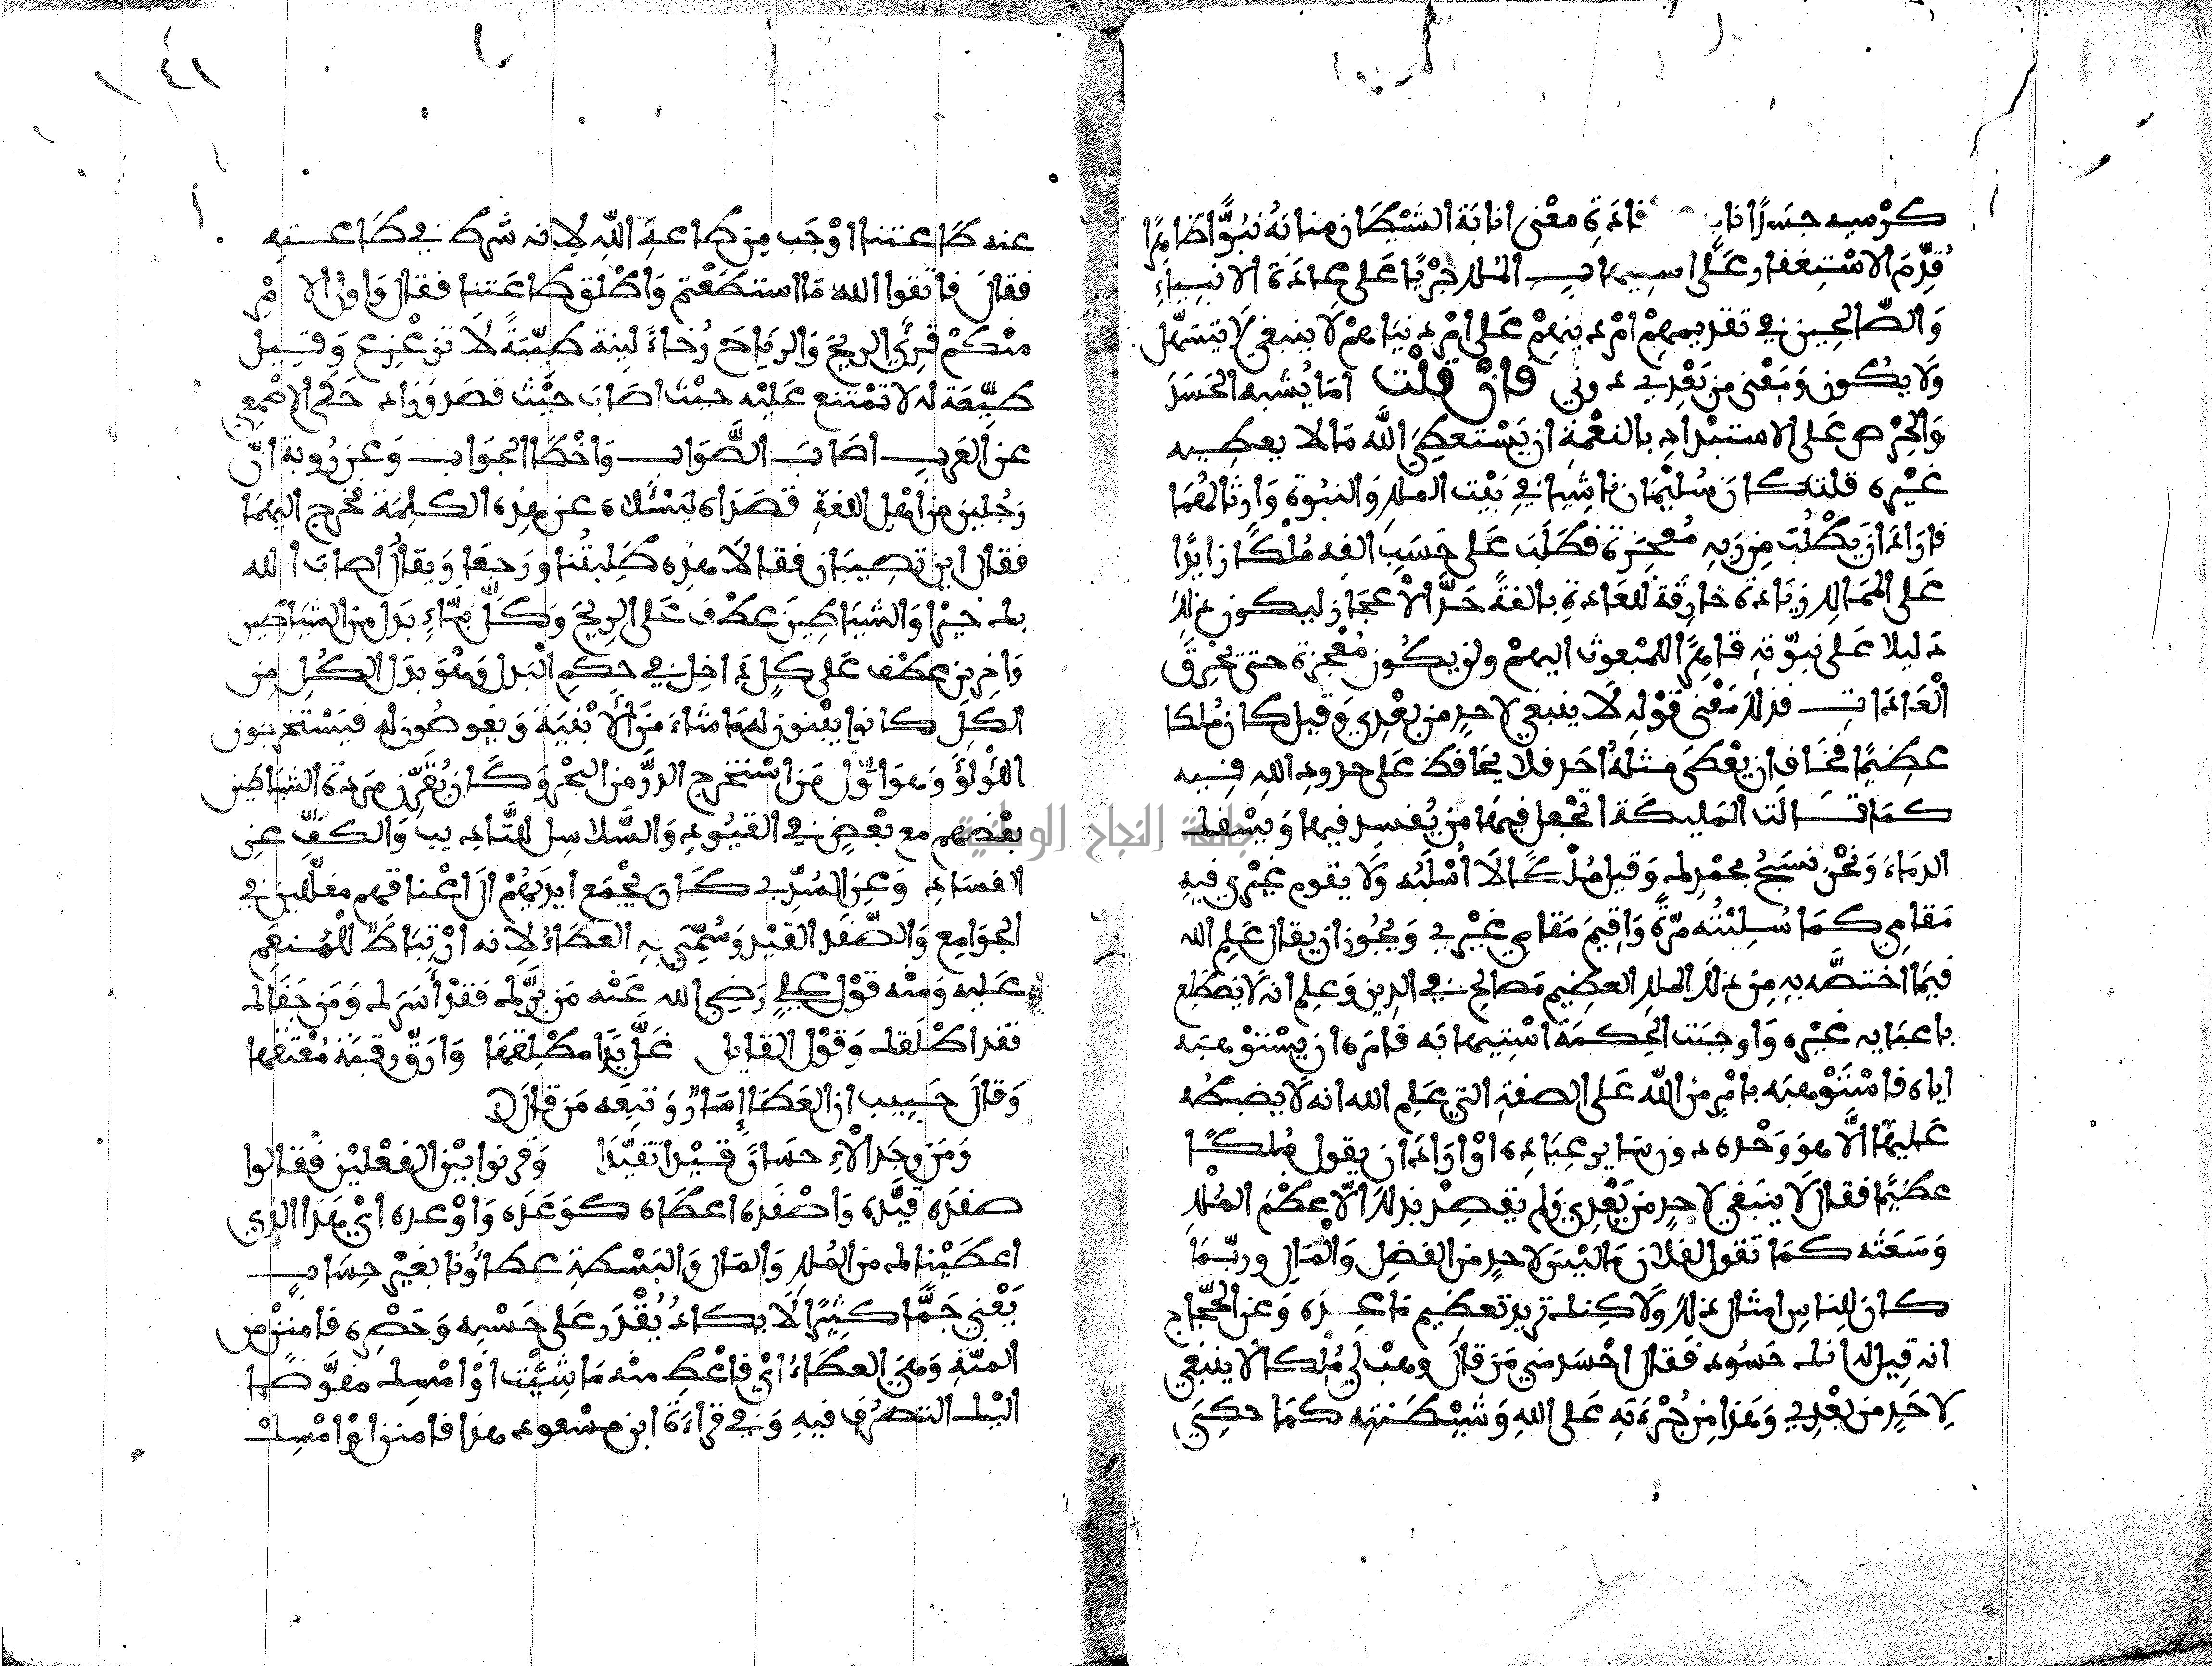 كرسيه جسدا فاناب معنى انابة الشيطان منا نبوا ظاهرا
قدم الاستغفار على استيهاب الملك جريا على عادة الانبياء
والصالحين في تقديمهم امر دينهم على امر دنياهم لا ينبغي لا يتسهل
ولا يكون ومعنى من بعدي دوني فان قلت اما يشبه الحسد
والحرص على الاستبداد بالنعمة ان يستعطي الله ما لا يعطيه
غيره قلت كان سليمان ناشيا في بيت الملك والنبوة وارثا لهما
فاراد ان يطلب من ربه معجزة فطلب على حسب الفه ملكا زايدا
على الممالك زيادة خارقة للعادة بالغة حد الاعجاز ليكون ذلك
دليلا على نبوته قاهرا للمبعوث اليهم ولن يكون معجزة حتى يخرق
العادات فذلك معنى قوله لا ينبغي لاحد من بعدي وقيل كان ملكا
عظيما فخاف ان يعطى مثله احد فلا يحافظ على حدود الله فيه
كما قالت المليكة اتجعل فيها من يفسد فيها ويسفك
الدماء ونحن نسبح بحمدك وقيل ملكا لا اسلبه ولا يقوم غيري فيه
مقامي كما سلبته مرة واقيم مقامي غيري ويجوز ان يقال علم الله
فيما اختصه به من ذلك الملك العظيم مصالح في الدين وعلم انه لا يضطلع
باعبايه غيره واوجبت الحكمة استيهابه فامره ان يستوهبه
اياه فاستوهبه بامر من الله على الصفة التي علم الله انه لا يضبطه
عليها الا هو وحده دون ساير عباده او اراد ان يقول ملكا
عظيما فقال لا ينبغي لاحد من بعدي ولم يقصد بذلك الا عظم الملك
وسعته كما تقول لفلان ما ليس لاحد من الفضل والمال وربما
كان للناس امثال ذلك ولاكنك تريد تعظيم ما عنده وعن الحجاج
انه قيل له انك حسود فقال احسد مني من قال وهب لي ملكا لا ينبغي
لاحد من بعدي وهذا من جرءته على الله وشيطنته كما حكي
عنه طاعتنا اوجب من طاعة الله لانه شرط في طاعته
فقال فاتقوا الله ما استطعتم واطلق طاعتنا فقال واولي الامر
منكم قرئ الريح والرياح رخاء لينة طيبة لا تزعزع وقيل
طيعة له لا تمتنع عليه حيث اصاب حيث قصد واراد حكى الاصمعي
عن العرب اصاب الصواب واخطا الجواب وعن روبة ان
رجلين من اهل اللغة قصداه ليسئلاه عن هذه الكلمة فخرج اليهما
فقال اين تصيبان فقالا هذه طلبتنا ورجعا ويقال اصاب الله
بك خيرا والشياطين عطف على الريح وكل بناء بدل من الشياطين
واخرين عطف على كل داخل في حكم البدل وهو بدل الكل من
الكل كانوا يبنون له ما شاء من الابنية ويغوصون له فيستخرجون
اللؤلؤ وهو اول من استخرج الدر من البحر وكان يقرن مردة الشياطين
بعضهم مع بعض في القيود والسلاسل للتاديب والكف عن
الفساد وعن السدي كان يجمع ايديهم الى اعناقهم مغللين في
الجوامع والصفد القيد وسمي به العطاء لانه ارتباط للمنعم
عليه ومنه قول علي رضي الله عنه من برك فقد اسرك ومن جفاك
فقد اطلقك وقول القايل غل يدا مطلقها وارق رقبة معتقها
وقال حبيب ان العطا اسار وتبعه من قال
ومن وجد الاحسان قيدا تقيدا وفرقوا بين الفعلين فقالوا
صفده قيده واصفده اعطاه كوعده واوعده اي هذا الذي
اعطيناك من الملك والمال والبسطة عطاؤنا بغير حساب
يعني جما كثيرا لا يكاد يقدر على حسبه وحصره فامنن من
المنة وهي العطاء اي فاعط منه ما شئت او امسك مفوضا
اليك التصرف فيه وفي قراءة ابن مسعود هذا فامنن او امسك
جامعة النجاح الوطنية